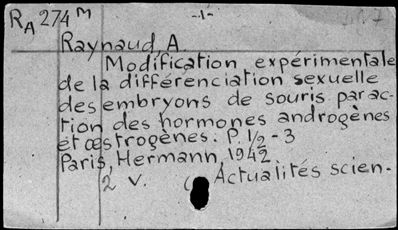 RA 274 M -1-
Raynaud A.
Modification expérimentale
de la différenciation sexuelle
des embryons de souris par ac-
tion des hormones androgènes
et œstrogènes. P. 1/2 - 3
Paris, Hermann, 1942
2 v. Actualités scien.